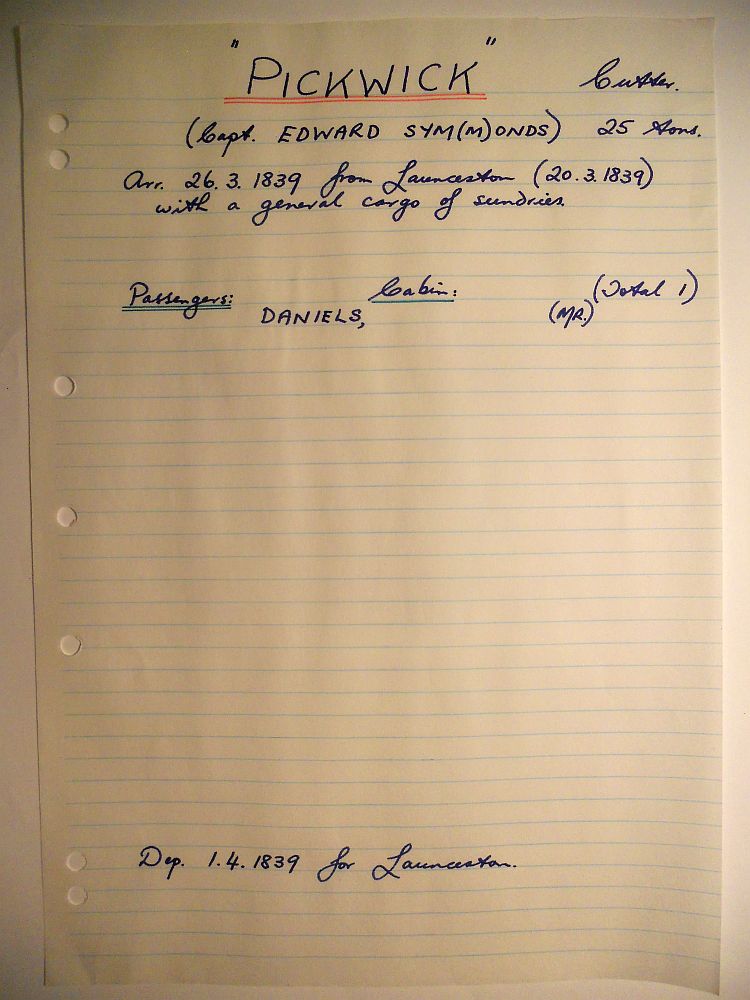 "PICKWICK" Cutter.
(Capt. EDWARD SYM(M)ONDS) 25 tons.
Arr. 26.3.1839 from Launceston (20.3.1839)
with a general cargo of sundries.
Passengers: Cabin: (Total 1)
DANIELS, (MR.)
Dep. 1.4.1839 for Launceston.